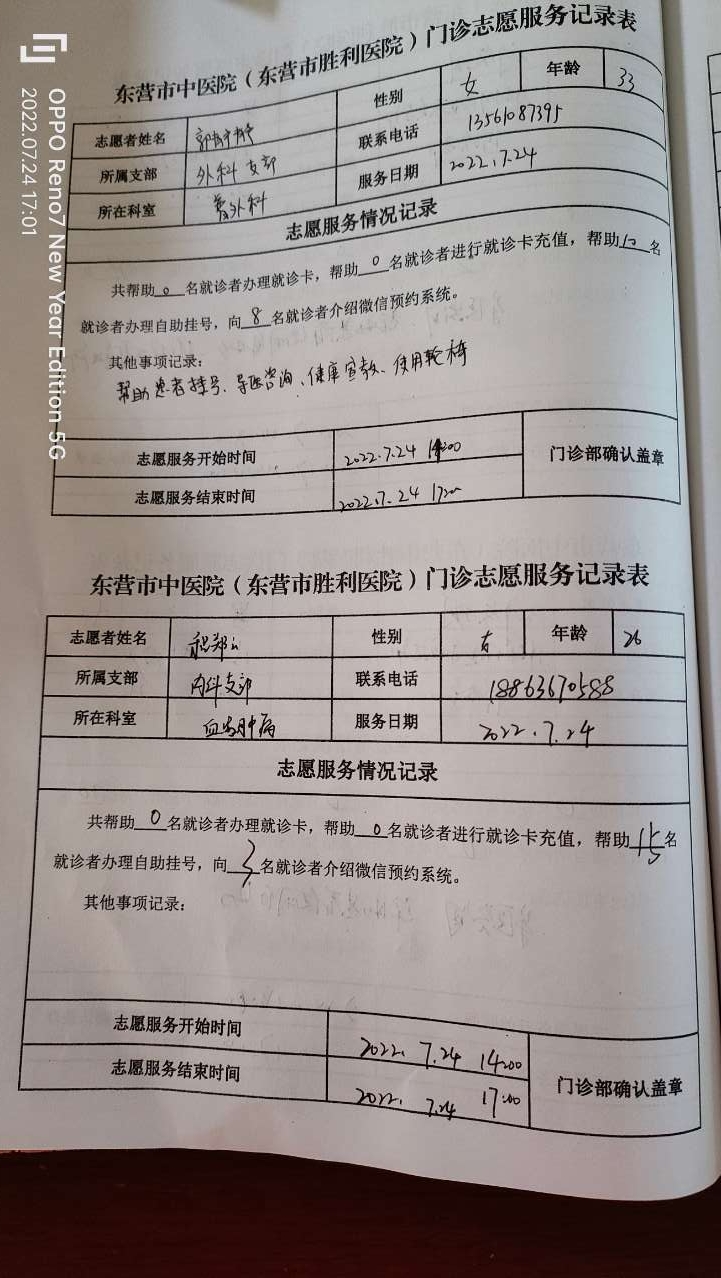 OPPO Reno7 New Year Edition 5G
2022.07.24 17:01
东营市中医院（东营市胜利医院）门诊志愿服务记录表
志愿者姓名 性别 女 年龄 33
所属支部 外科支部 联系电话 13561087395
所在科室 外科 服务日期 2022.7.24
志愿服务情况记录
共帮助 0 名就诊者办理就诊卡，帮助 0 名就诊者进行就诊卡充值，帮助 10 名
就诊者办理自助挂号，向 8 名就诊者介绍微信预约系统。
其他事项记录：
帮助患者挂号、导医咨询、健康宣教、使用轮椅
志愿服务开始时间 2022.7.24 14:00 门诊部确认盖章
志愿服务结束时间 2022.7.24 17:00
东营市中医院（东营市胜利医院）门诊志愿服务记录表
志愿者姓名 性别 女 年龄 26
所属支部 内科支部 联系电话 18863670588
所在科室 血液肿瘤 服务日期 2022.7.24
志愿服务情况记录
共帮助 0 名就诊者办理就诊卡，帮助 0 名就诊者进行就诊卡充值，帮助 15 名
就诊者办理自助挂号，向 3 名就诊者介绍微信预约系统。
其他事项记录：
志愿服务开始时间 2022. 7.24 14:00 门诊部确认盖章
志愿服务结束时间 2022. 7.24 17:00